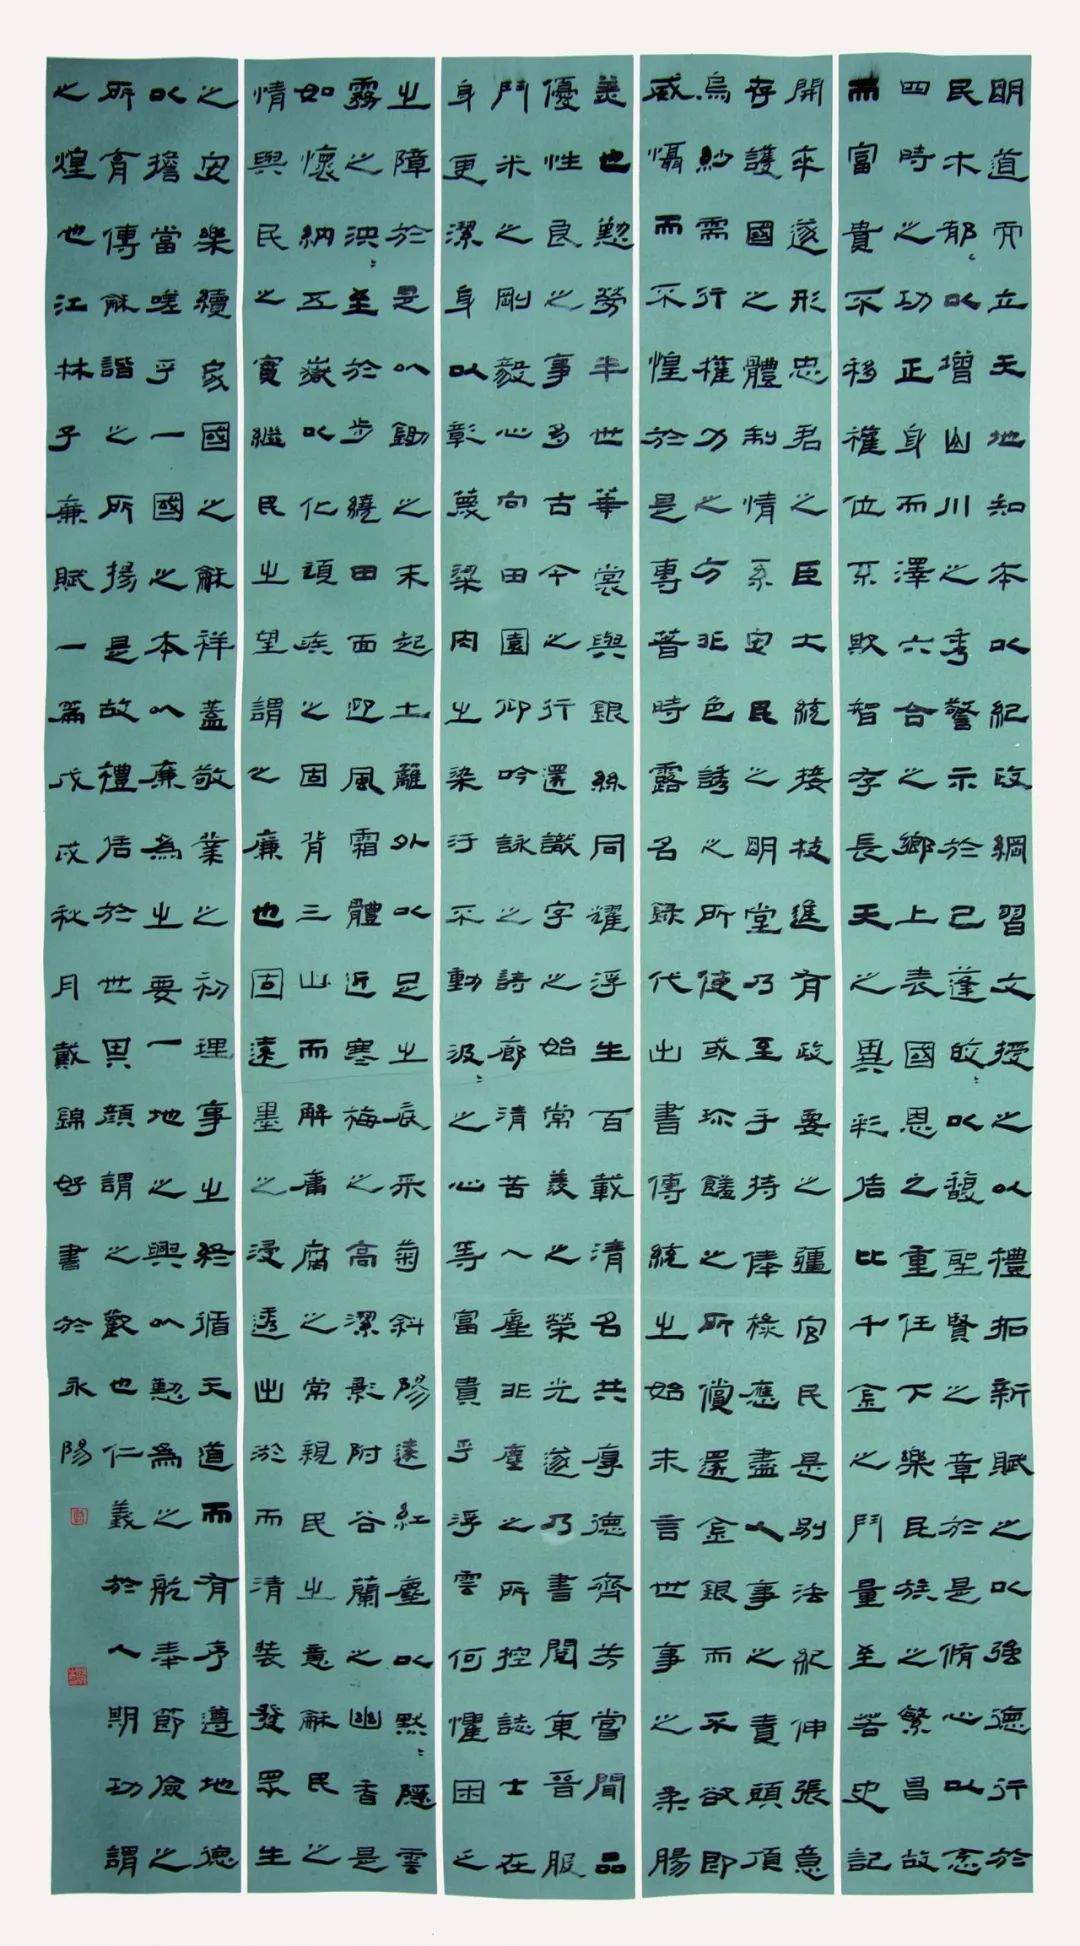 明道而立天地知本以紀政綱習文授之以禮拓新賦之以強德行於
民木郁〻以增山川之秀警示於己蓬皎〻以馥聖賢之章於是脩心以志
四時之功正身而澤六合之鄉上表國恩之重任下樂民族之繁昌故
而富貴不移權位不欺智存長天之異彩信比千金之鬥量至若史記
開來遂形忠君之臣大統接枝進有政要之疆官民是別法紀伸張意
存護國之體制情系安民之明堂乃至手持俸祿應盡人事之責頭頂
烏紗需行權力之方非色誘之所使或珍饈之所償還金銀而不欲即
威懾而不惶於是專著時露名録代出書傳統之始末言世事之柔腸
美也勤勞半世華裳與銀絲同耀浮生百載清名共厚德齊芳嘗聞品
優性良之事多古今之行還識字之始常羨之榮光遂乃書閱東晉服
鬥米之剛毅心向田園仰吟詠之詩廊清苦入塵非塵之所控誌士在
身更潔身以彰蔑粱肉之染汙不動汲〻之心等富貴乎浮雲何懼困乏
之障於是以鋤之末起土籬外以足之底采菊斜陽遠紅塵以默〻隱雲
霧之泱〻至於步繞田面迎風霜體近寒梅之高潔影附谷蘭之幽香是
如懷納五嶽以化頑疾之固背三山而解庸腐之常親民之意和民之
情與民之實繼民之望謂之廉也固遠墨之浸透出淤而清裝發眾生
之安樂續家國之和祥蓋敬業之初理事之終循天道而有序遵地德
以擔當嗟乎一國之本以廉為之要一地之興以勤為之航奉節儉之
所育傳和諧之所揚是故禮信於世異顏謂之歡也仁義於人期功謂
之煌也江林子廉賦一篇戊戌秋月戴錦好書於永陽